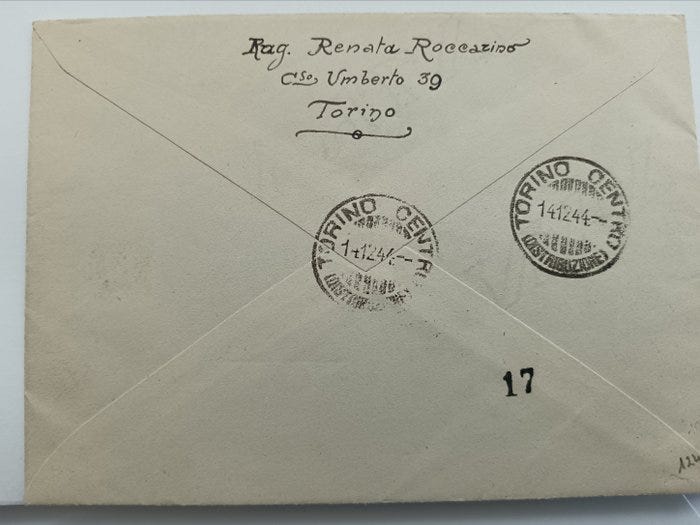 Rag. Renata Roccarino
Cso Umberto 39
Torino
TORINO CENTRO
141244-
(DISTRIBUZIONE)
TORINO CENTRO
141244-
(DISTRIBUZIONE)
17